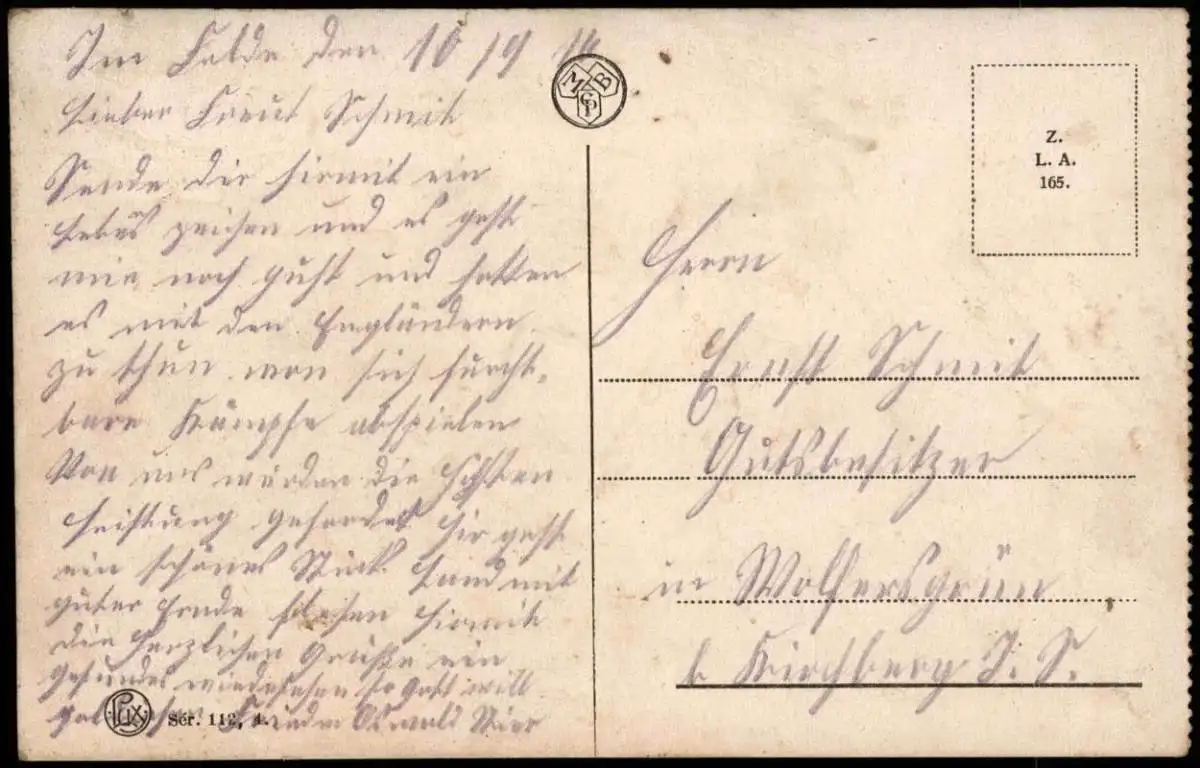 Im Felde den 10/9 14
Lieber Freut Schmit
Sende dir hirmit ein
Lebens zeichen und es geht
mir noch guht und hatten
es mit den Engländern
zu thun, wo sich furcht,
bare Kämpfe abspielen
Von uns werden die
Leistung gefordet hir geht
ein schönes Stück Land mit
guter hirmit
die herzlichen Grüße ein
gesundes wiedersehen so Gott will
Oswald
Herrn
Ernst Schmit
Gutsbesitzer
in Wolfersgrün
b Kirchberg I. S.
M B
Z.
L. A.
165.
Lux
Ser. 112,